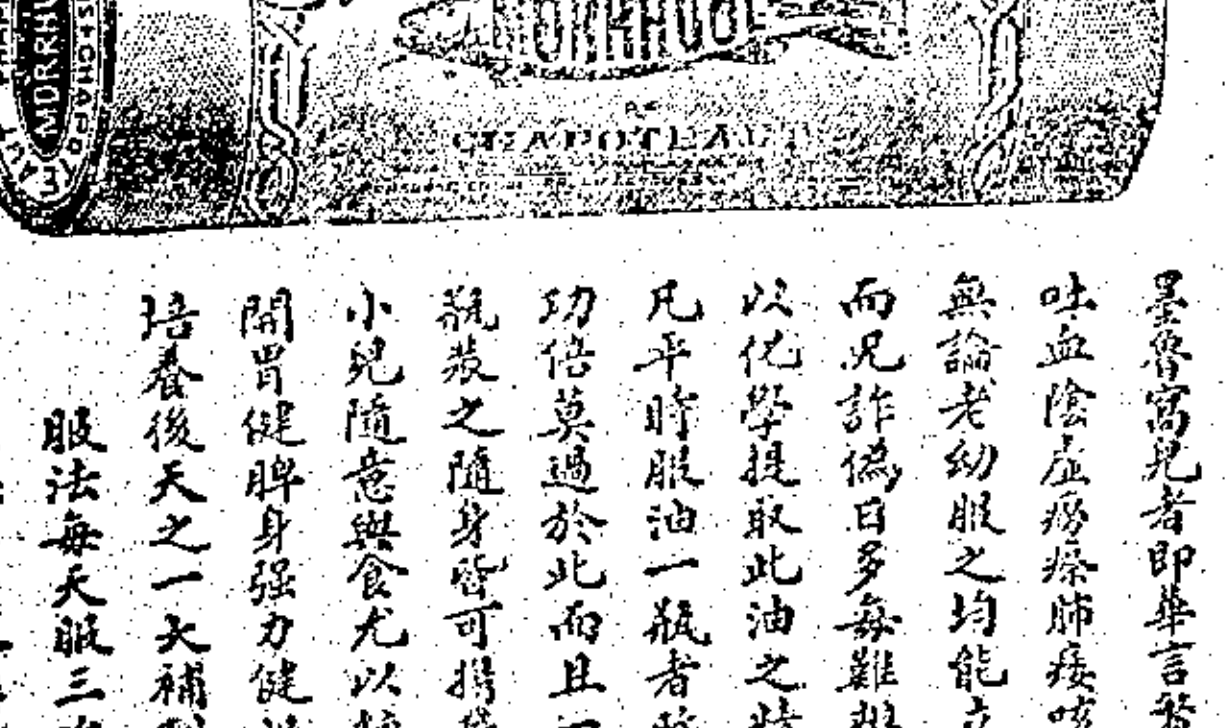 MORRHU
MORRHUOL
DE
CHAPOTEAUT
墨魯窩兒者即華言
吐血陰虛癆瘵肺痿咳
無論老幼服之均能立
而況詐偽日多每難
以化學提取此油之
凡平時服油一瓶者
功倍莫過於此而且一
瓶裝之隨身皆可攜
小兒隨意與食尤以
開胃健脾身强力健
培養後天之一大補
服法每天服三